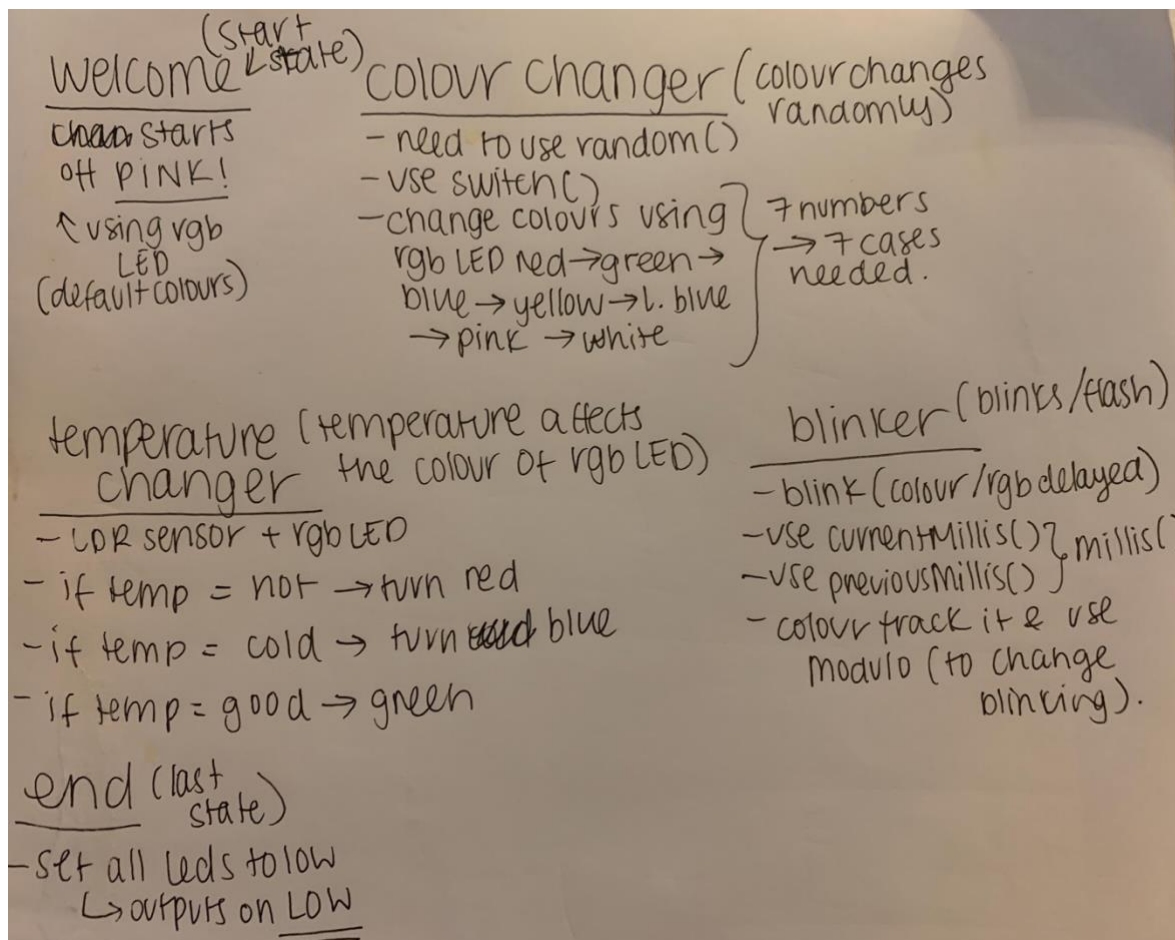 welcome (start
state)
starts
off PINK!
↑ using rgb
LED
(default colours)
colour changer (colour changes
randomly)
- need to use random()
- use switch()
- change colours using
rgb LED red → green →
blue → yellow → l. blue
→ pink → white
7 numbers
→ 7 cases
needed.
temperature (temperature affects
changer the colour of rgb LED)
- LDR sensor + rgb LED
- if temp = hot → turn red
- if temp = cold → turn blue
- if temp = good → green
blinker (blinks/flash)
- blink (colour/rgb delayed)
- use currentMillis() } millis(
- use previousMillis()
- colour track it & use
modulo (to change
blinking).
end (last
state)
- set all leds to low
↳ outputs on LOW